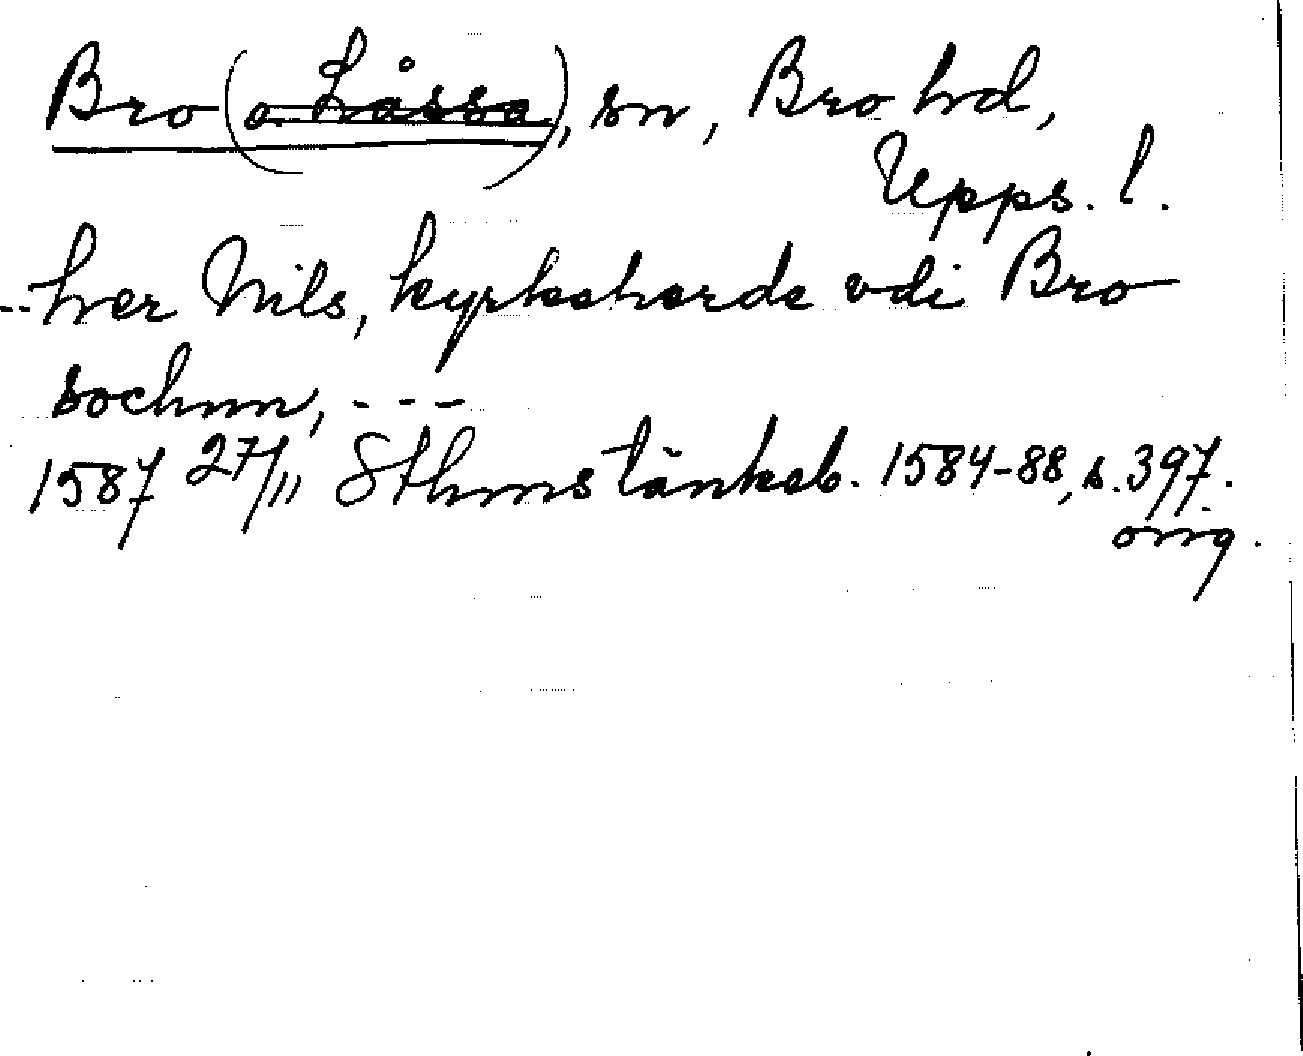 Bro (o. Låssa), sn, Bro hd,
Upps. l.
--her Nils, kyrkeherde vdi Bro
sochnn, ---
1587 27/11 Sthms tänkeb. 1584-88, s. 397.
orig.